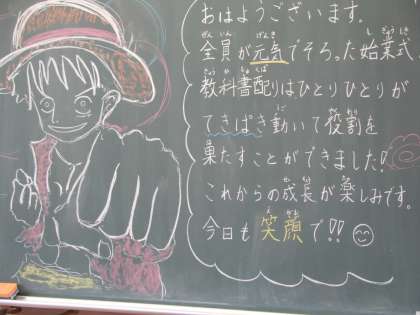 おはようございます。
全員が元気でそろった始業式。
教科書配りはひとりひとりが
てきぱき動いて役割を
果たすことができました!
これからの成長が楽しみです。
今日も笑顔で!!